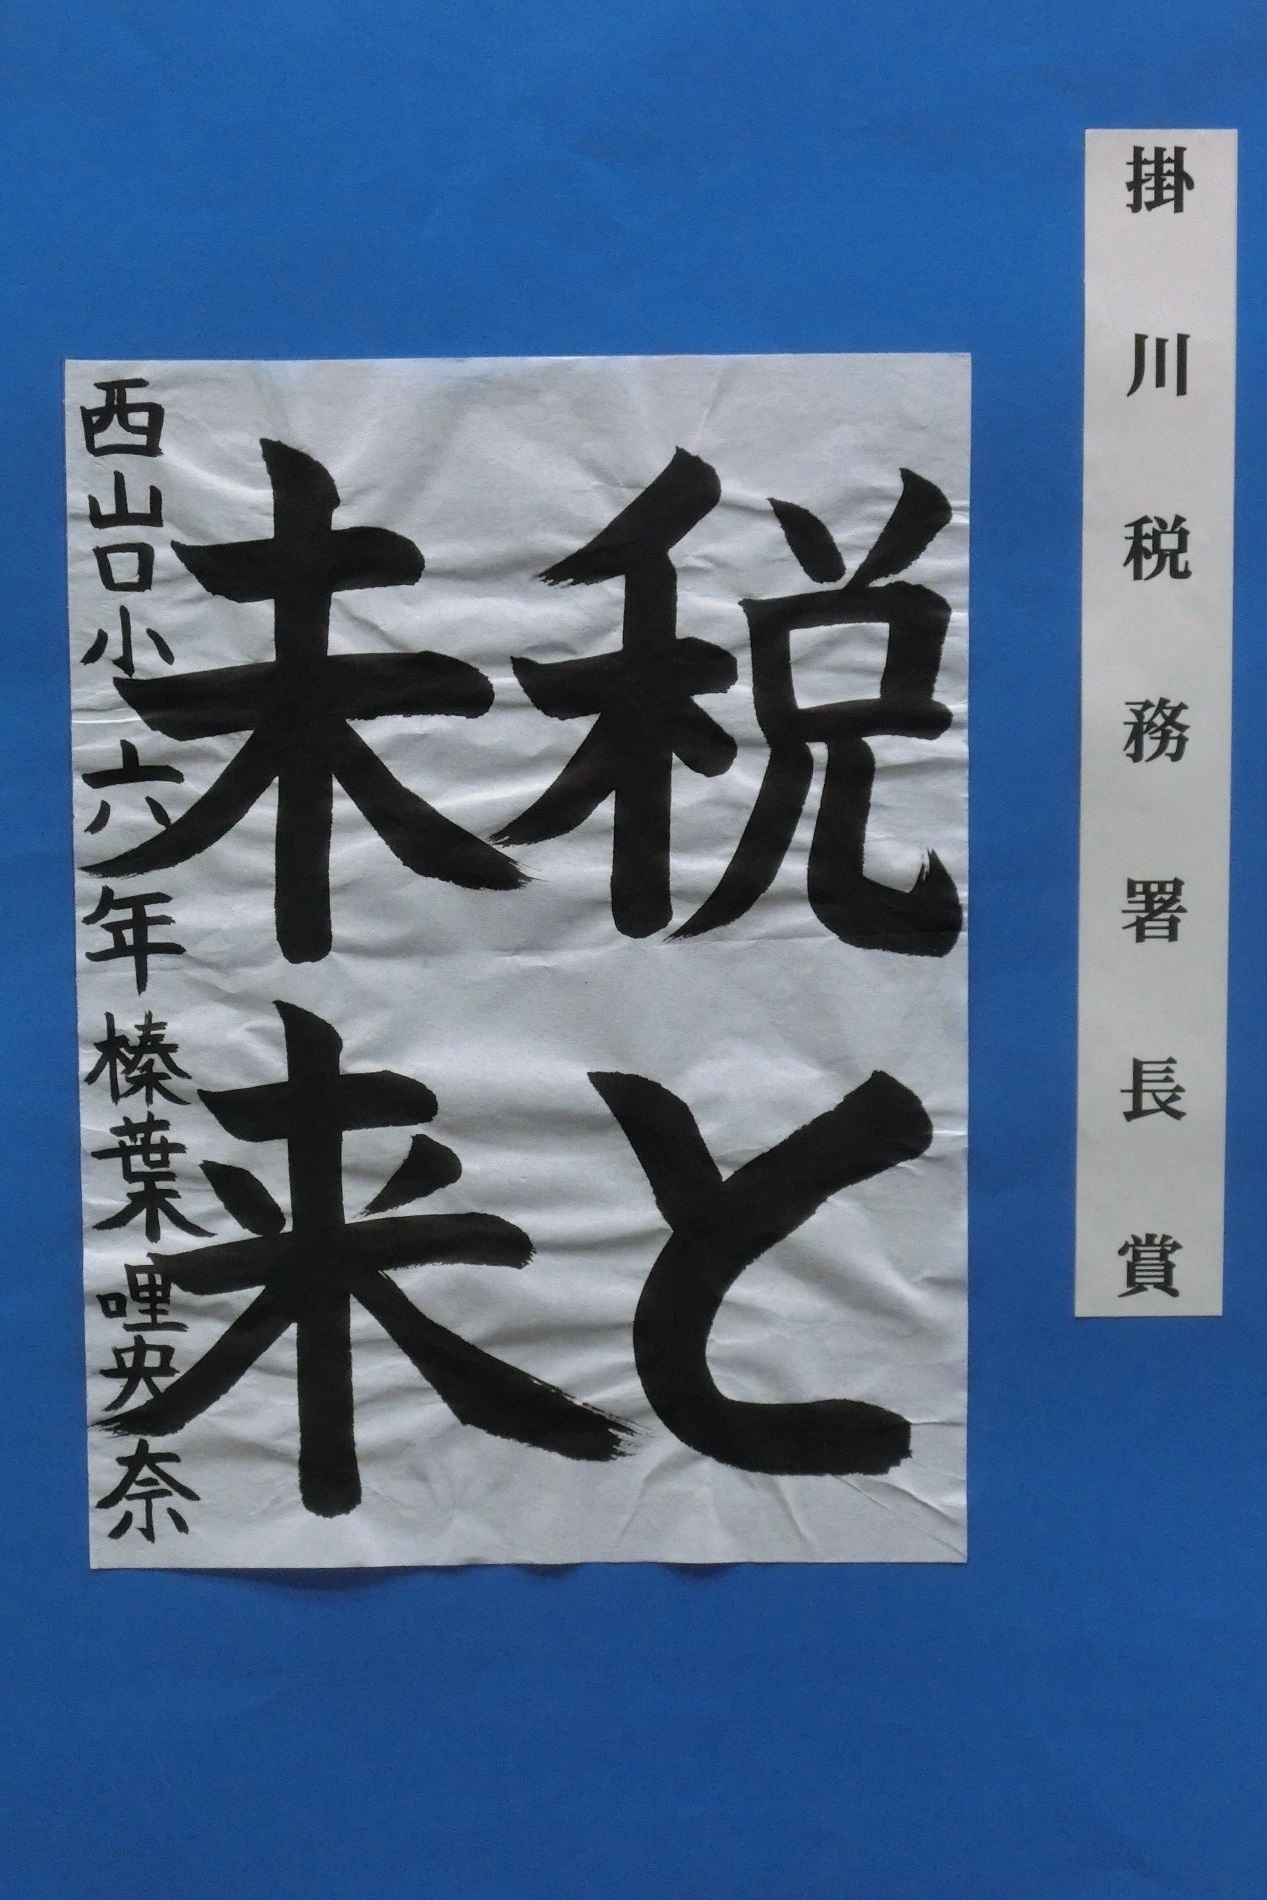 掛川税務署長賞
税と
未来
西山口小六年榛葉哩央奈